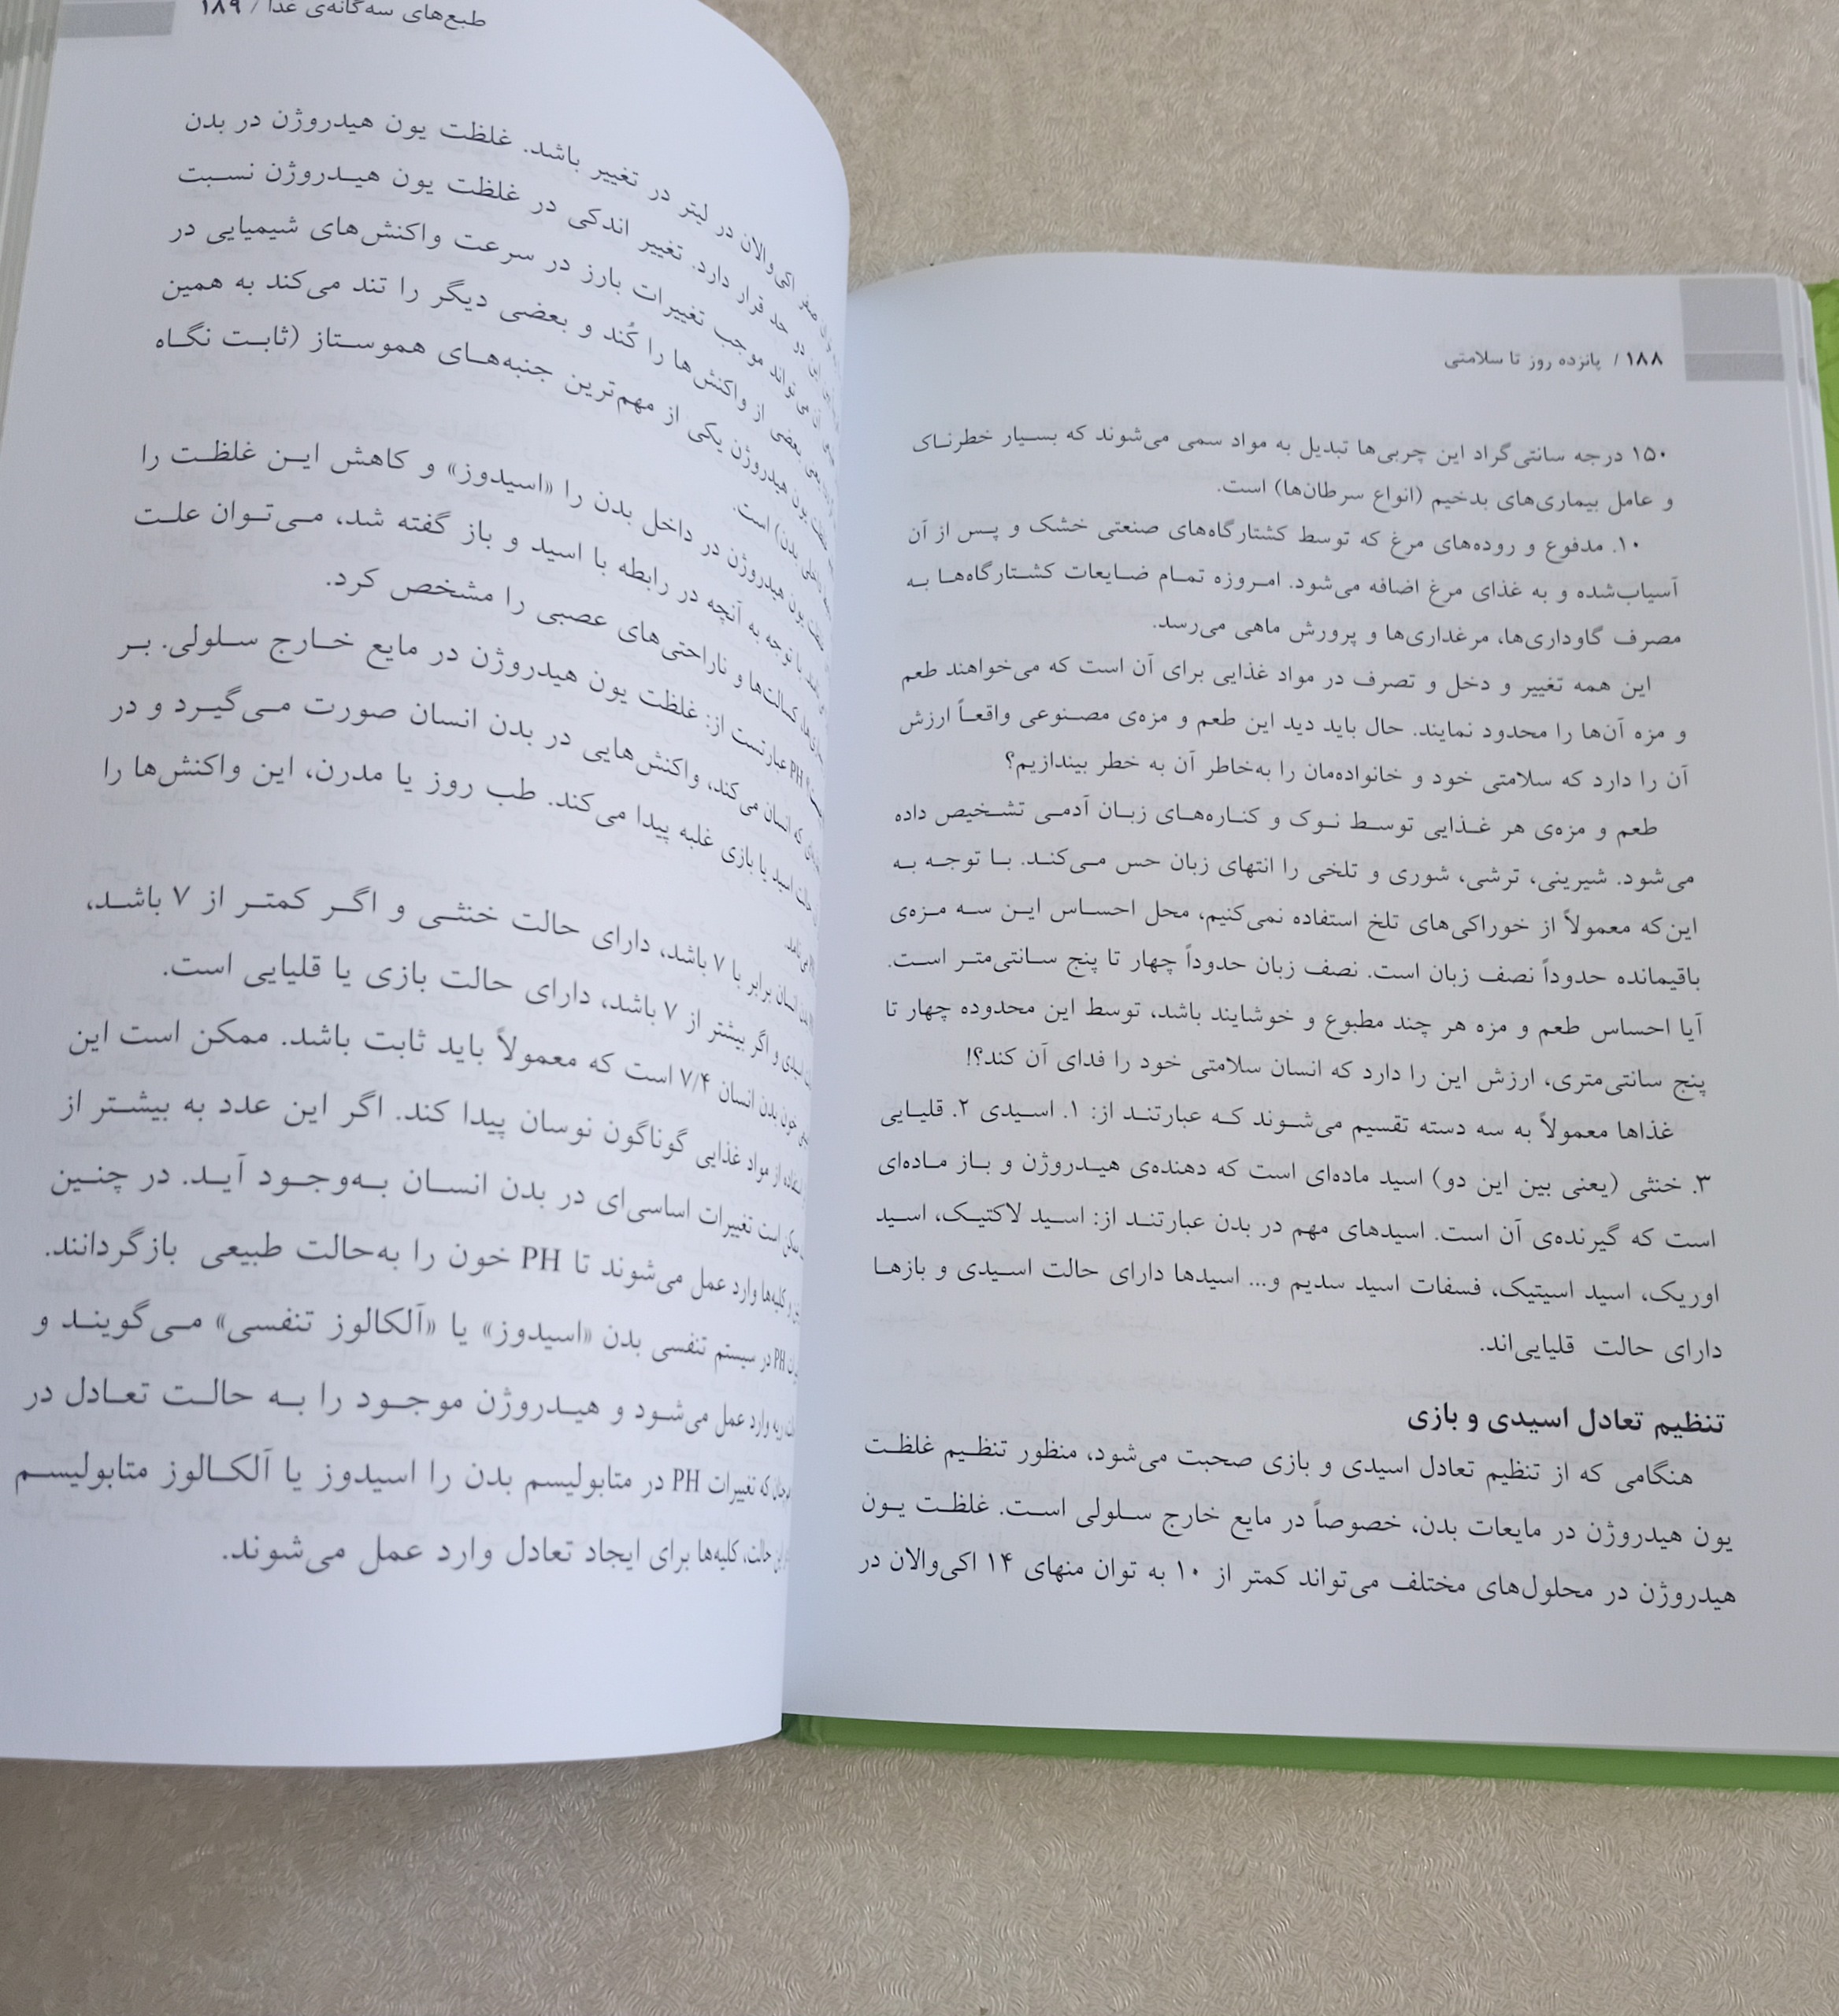 ۱۸۸ / پانزده روز تا سلامتی
۱۵۰ درجه سانتی‌گراد این چربی‌ها تبدیل به مواد سمی می‌شوند که بسیار خطرناک
و عامل بیماری‌های بدخیم (انواع سرطان‌ها) است.
۱۰. مدفوع و روده‌های مرغ که توسط کشتارگاه‌های صنعتی خشک و پس از آن
آسیاب‌شده و به غذای مرغ اضافه می‌شود. امروزه تمام ضایعات کشتارگاه‌ها به
مصرف گاوداری‌ها، مرغداری‌ها و پرورش ماهی می‌رسد.
این همه تغییر و دخل و تصرف در مواد غذایی برای آن است که می‌خواهند طعم
و مزه آن‌ها را محدود نمایند. حال باید دید این طعم و مزه‌ی مصنوعی واقعاً ارزش
آن را دارد که سلامتی خود و خانواده‌مان را به‌خاطر آن به خطر بیندازیم؟
طعم و مزه‌ی هر غذایی توسط نوک و کناره‌های زبان آدمی تشخیص داده
می‌شود. شیرینی، ترشی، شوری و تلخی را انتهای زبان حس می‌کند. با توجه به
این‌که معمولاً از خوراکی‌های تلخ استفاده نمی‌کنیم، محل احساس این سه مزه‌ی
باقیمانده حدوداً نصف زبان است. نصف زبان حدوداً چهار تا پنج سانتی‌متر است.
آیا احساس طعم و مزه هر چند مطبوع و خوشایند باشد، توسط این محدوده چهار تا
پنج سانتی‌متری، ارزش این را دارد که انسان سلامتی خود را فدای آن کند؟!
غذاها معمولاً به سه دسته تقسیم می‌شوند که عبارتند از: ۱. اسیدی ۲. قلیایی
۳. خنثی (یعنی بین این دو) اسید ماده‌ای است که دهنده‌ی هیدروژن و باز ماده‌ای
است که گیرنده‌ی آن است. اسیدهای مهم در بدن عبارتند از: اسید لاکتیک، اسید
اوریک، اسید اسیتیک، فسفات اسید سدیم و... اسیدها دارای حالت اسیدی و بازها
دارای حالت قلیایی‌اند.
تنظیم تعادل اسیدی و بازی
هنگامی که از تنظیم تعادل اسیدی و بازی صحبت می‌شود، منظور تنظیم غلظت
یون هیدروژن در مایعات بدن، خصوصاً در مایع خارج سلولی است. غلظت یون
هیدروژن در محلول‌های مختلف می‌تواند کمتر از ۱۰ به توان منهای ۱۴ اکی‌والان در
طبع‌های سه‌گانه‌ی غذا / ۱۸۹
صفر اکی‌والان در لیتر در تغییر باشد. غلظت یون هیدروژن در بدن
دو حد قرار دارد. تغییر اندکی در غلظت یون هیدروژن نسبت
می‌تواند موجب تغییرات بارز در سرعت واکنش‌های شیمیایی در
بعضی از واکنش‌ها را کُند و بعضی دیگر را تند می‌کند به همین
یون هیدروژن یکی از مهم‌ترین جنبه‌های هموستاز (ثابت نگاه
بدن) است.
یون هیدروژن در داخل بدن را «اسیدوز» و کاهش این غلظت را
با توجه به آنچه در رابطه با اسید و باز گفته شد، می‌توان علت
کسالت‌ها و ناراحتی‌های عصبی را مشخص کرد.
PH عبارتست از: غلظت یون هیدروژن در مایع خارج سلولی. بر
که انسان می‌کند، واکنش‌هایی در بدن انسان صورت می‌گیرد و در
اسید یا بازی غلبه پیدا می‌کند. طب روز یا مدرن، این واکنش‌ها را
می‌نامد.
انسان برابر با ۷ باشد، دارای حالت خنثی و اگر کمتر از ۷ باشد،
اسیدی و اگر بیشتر از ۷ باشد، دارای حالت بازی یا قلیایی است.
خون بدن انسان ۷/۴ است که معمولاً باید ثابت باشد. ممکن است این
از مواد غذایی گوناگون نوسان پیدا کند. اگر این عدد به بیشتر از
ممکن است تغییرات اساسی‌ای در بدن انسان به‌وجود آید. در چنین
و کلیه‌ها وارد عمل می‌شوند تا PH خون را به‌حالت طبیعی بازگردانند.
PH در سیستم تنفسی بدن «اسیدوز» یا «آلکالوز تنفسی» می‌گویند و
ریه وارد عمل می‌شود و هیدروژن موجود را به حالت تعادل در
که تغییرات PH در متابولیسم بدن را اسیدوز یا آلکالوز متابولیسم
حالت، کلیه‌ها برای ایجاد تعادل وارد عمل می‌شوند.